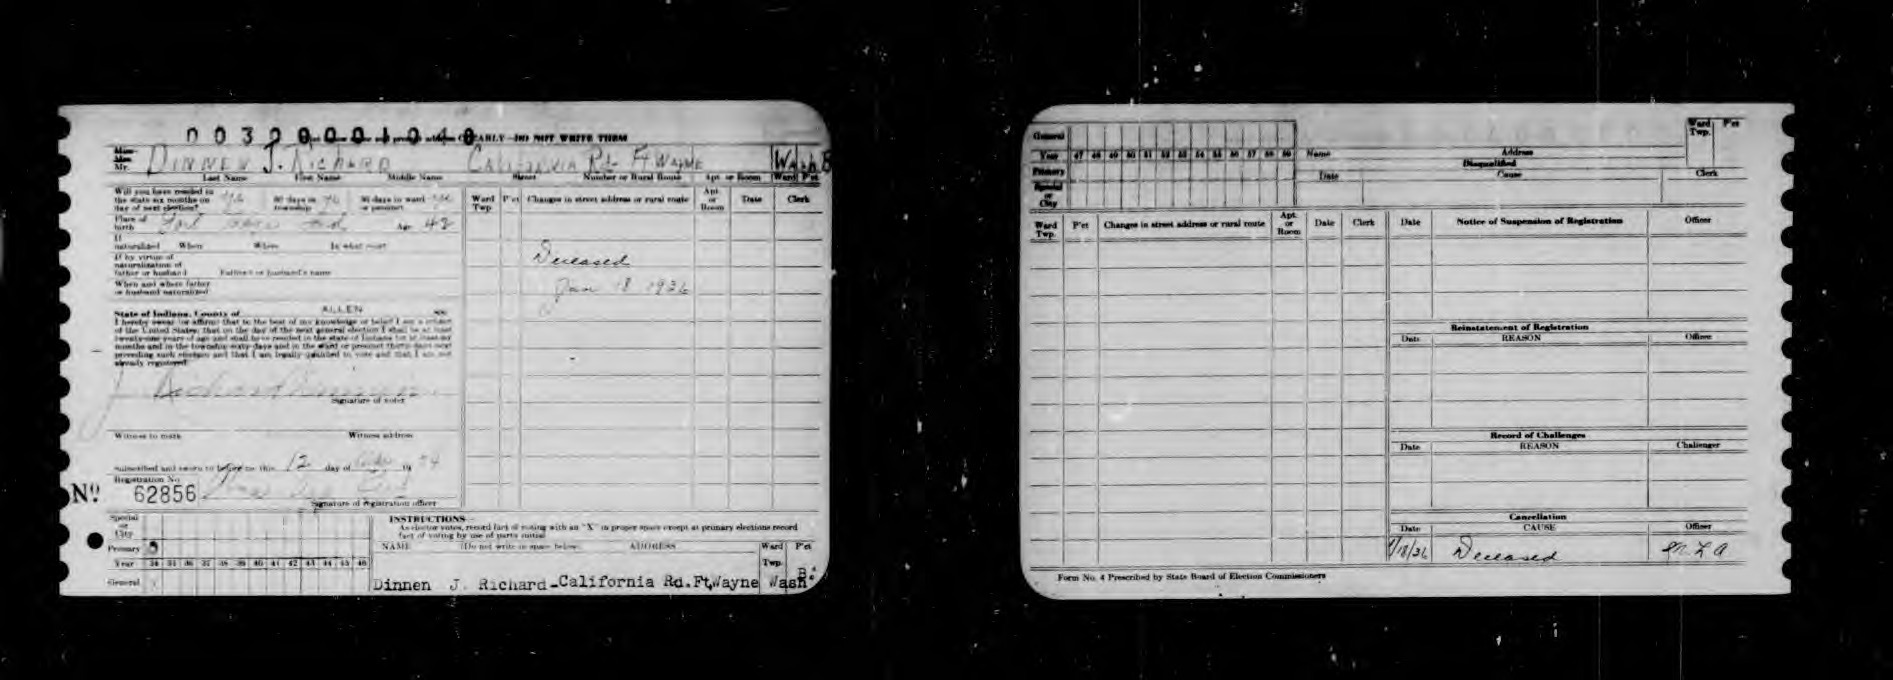 00320001040
CLEARLY—DO NOT WRITE THEM
Mr. DINNEN J. RICHARD CALIFORNIA RD FT WAYNE Wash B
Last Name First Name Middle Name Street Number or Rural Route Apt. or Room Ward P'ct
Will you have resided in the state six months on day of next election? yes 60 days in township yes 30 days in ward or precinct yes
Ward Twp. P'ct Changes in street address or rural route Apt. or Room Date Clerk
Place of birth Fort Wayne Ind Age 42
If naturalized When Where In what court
If by virtue of naturalization of father or husband Father's or husband's name
Deceased
When and where father or husband naturalized
Jan 18 1936
State of Indiana, County of ALLEN ss:
I hereby swear (or affirm) that to the best of my knowledge or belief I am a citizen
of the United States; that on the day of the next general election I shall be at least
twenty-one years of age and shall have resided in the state of Indiana for at least six
months and in the township sixty days and in the ward or precinct thirty days next
preceding such election and that I am legally qualified to vote and that I am not
already registered.
J Richard Dinnen
Signature of voter
Witness to mark Witness address
Subscribed and sworn to before me this 12 day of 19 34
Registration No.
No. 62856
Signature of registration officer
Special or City
Primary
Year 34 35 36 37 38 39 40 41 42 43 44 45 46
General
INSTRUCTIONS—
As elector votes, record fact of voting with an "X" in proper space except at primary elections record
fact of voting by use of party initial
NAME (Do not write in space below) ADDRESS Ward Twp. P'ct
Dinnen J. Richard-California Rd.Ft,Wayne Wash B
General
Year 47 48 49 50 51 52 53 54 55 56 57 58 59
Primary
Special or City
Name Address Ward Twp. P'ct
Disqualified
Date Cause Clerk
Ward Twp. P'ct Changes in street address or rural route Apt. or Room Date Clerk
Date Notice of Suspension of Registration Officer
Reinstatement of Registration
Date REASON Officer
Record of Challenges
Date REASON Challenger
Cancellation
Date CAUSE Officer
1/18/36 Deceased M. L. A
Form No. 4 Prescribed by State Board of Election Commissioners